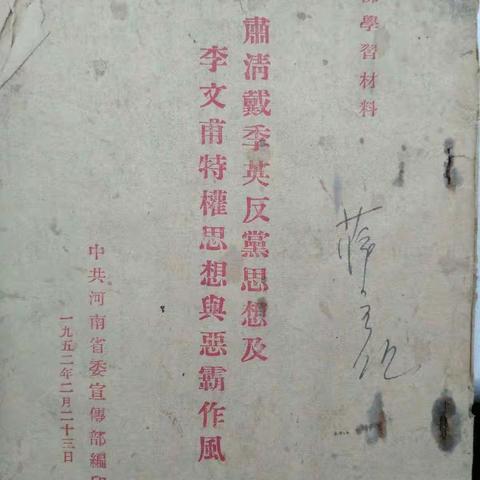 學習材料
肅清戴季英反黨思想及
李文甫特權思想與惡霸作風
中共河南省委宣傳部編
一九五二年二月二十三日